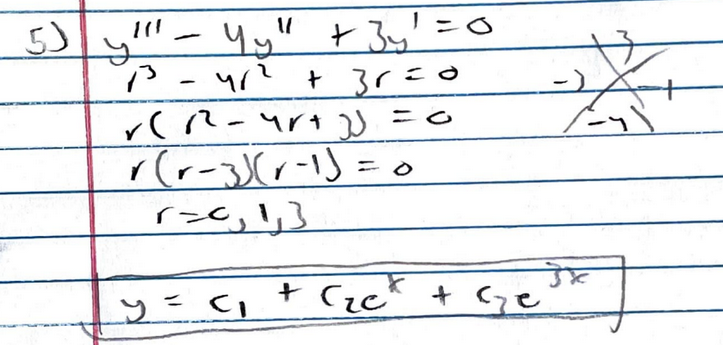 5) y''' - 4y'' + 3y' = 0
r³ - 4r² + 3r = 0
3
-3 -1
-4
r(r² - 4r + 3) = 0
r(r-3)(r-1) = 0
r = 0, 1, 3
y = c₁ + c₂eˣ + c₃e³ˣ